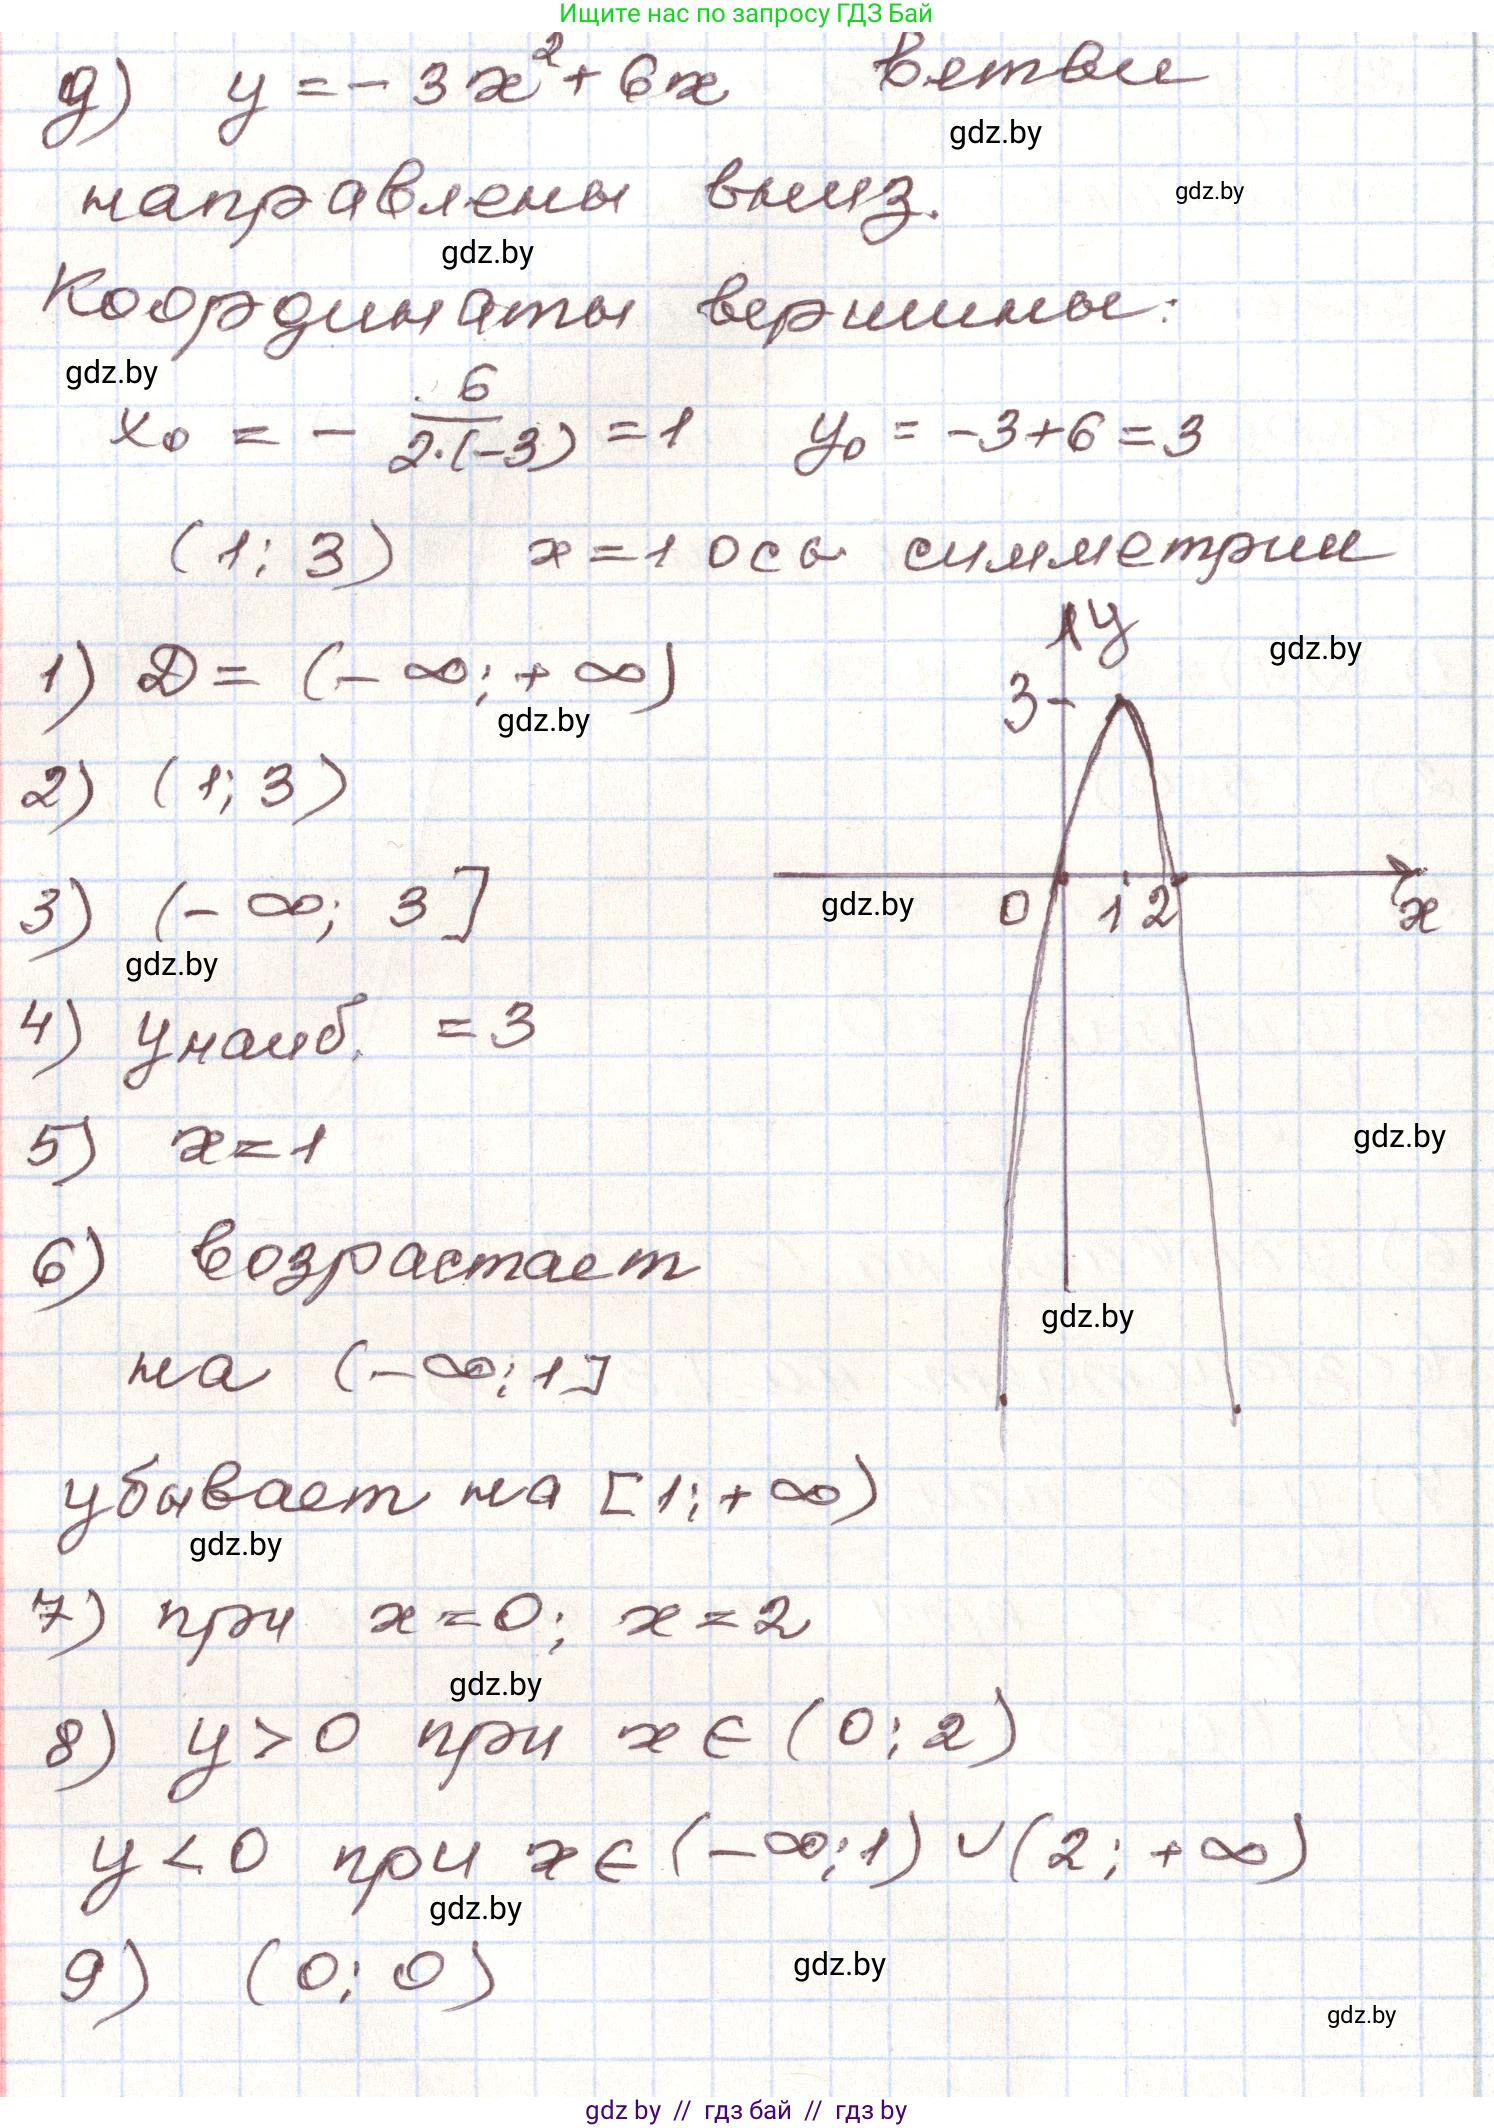 Ищите нас по запросу ГДЗ Бай
д) y = - 3x² + 6x ветви
gdz.by
направлены вниз.
gdz.by
gdz.by
Координаты вершины:
gdz.by
x₀ = - 6/(2·(-3)) = 1 y₀ = -3+6 = 3
(1; 3) x = 1 ось симметрии
y
gdz.by
1) D = (- ∞; + ∞)
3
gdz.by
2) (1; 3)
3) (- ∞; 3]
gdz.by
0 1 2 x
gdz.by
4) yнаиб. = 3
5) x = 1
gdz.by
6) возрастает
gdz.by
на (-∞; 1]
убывает на [1; +∞)
gdz.by
7) при x = 0; x = 2
gdz.by
8) y > 0 при x ∈ (0; 2)
y < 0 при x ∈ (-∞; 1) ∪ (2; +∞)
gdz.by
9) (0; 0)
gdz.by
gdz.by
gdz by // гдз бай // гдз by